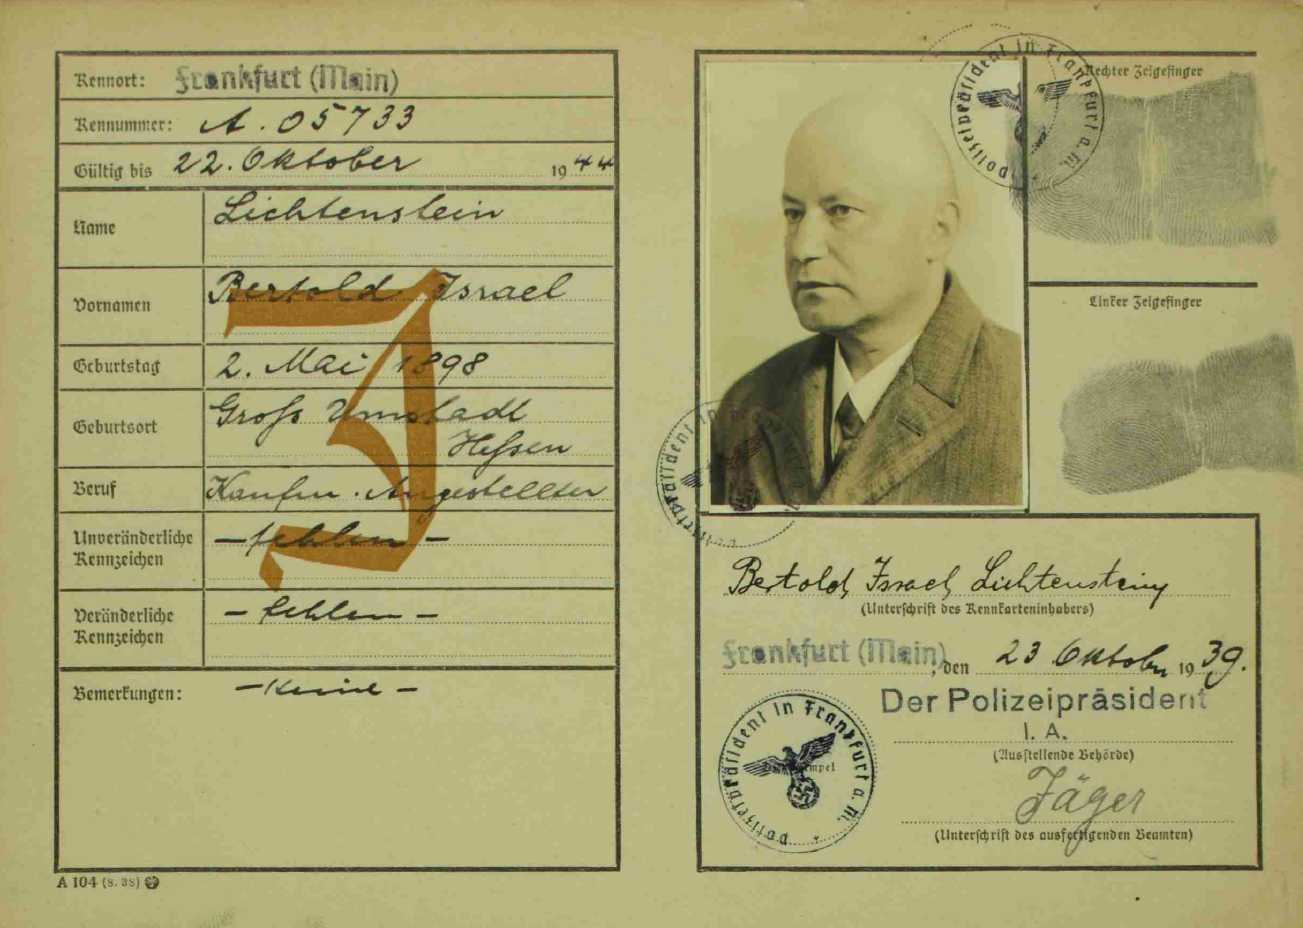 Kennort: Frankfurt (Main)
Kennummer: A. 05733
Gültig bis 22. Oktober 1944
Name Lichtenstein
Vornamen Bertold Israel
Geburtstag 2. Mai 1898
Geburtsort Groß Umstadt
Hessen
Beruf Kaufm. Angestellter
Unveränderliche Kennzeichen — fehlen —
Veränderliche Kennzeichen — fehlen —
Bemerkungen: — Keine —
J
A 104 (8. 38)
Rechter Zeigefinger
Linker Zeigefinger
Polizeipräsident in Frankfurt a. M.
Polizeipräsident in
Bertold Israel Lichtenstein
(Unterschrift des Kennkarteninhabers)
Frankfurt (Main), den 23 Oktober 1939.
Der Polizeipräsident
I. A.
(Ausstellende Behörde)
Jäger
(Unterschrift des ausfertigenden Beamten)
Polizeipräsident in Frankfurt a. M.